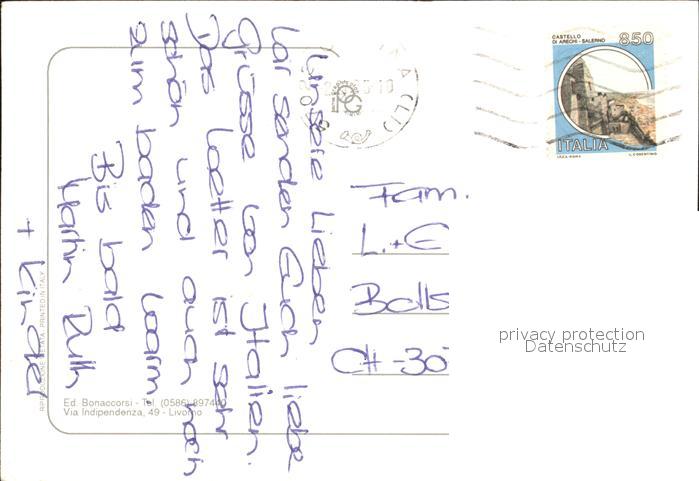 Unsere Lieben
Wir senden Euch liebe
Grüsse von Italien.
Das Wetter ist sehr
schön und auch noch
zum baden warm
Bis bald
Martin Ruth
+ Kinder
Fam.
L. + E
Bolls
CH-30
CASTELLO
DI ARECHI - SALERNO
850
ITALIA
I.P.Z.S. ROMA
(LI)
privacy protection
Datenschutz
RIPRODUZIONE VIETATA. PRINTED IN ITALY
Ed. Bonaccorsi - Tel. (0586) 897440
Via Indipendenza, 49 - Livorno